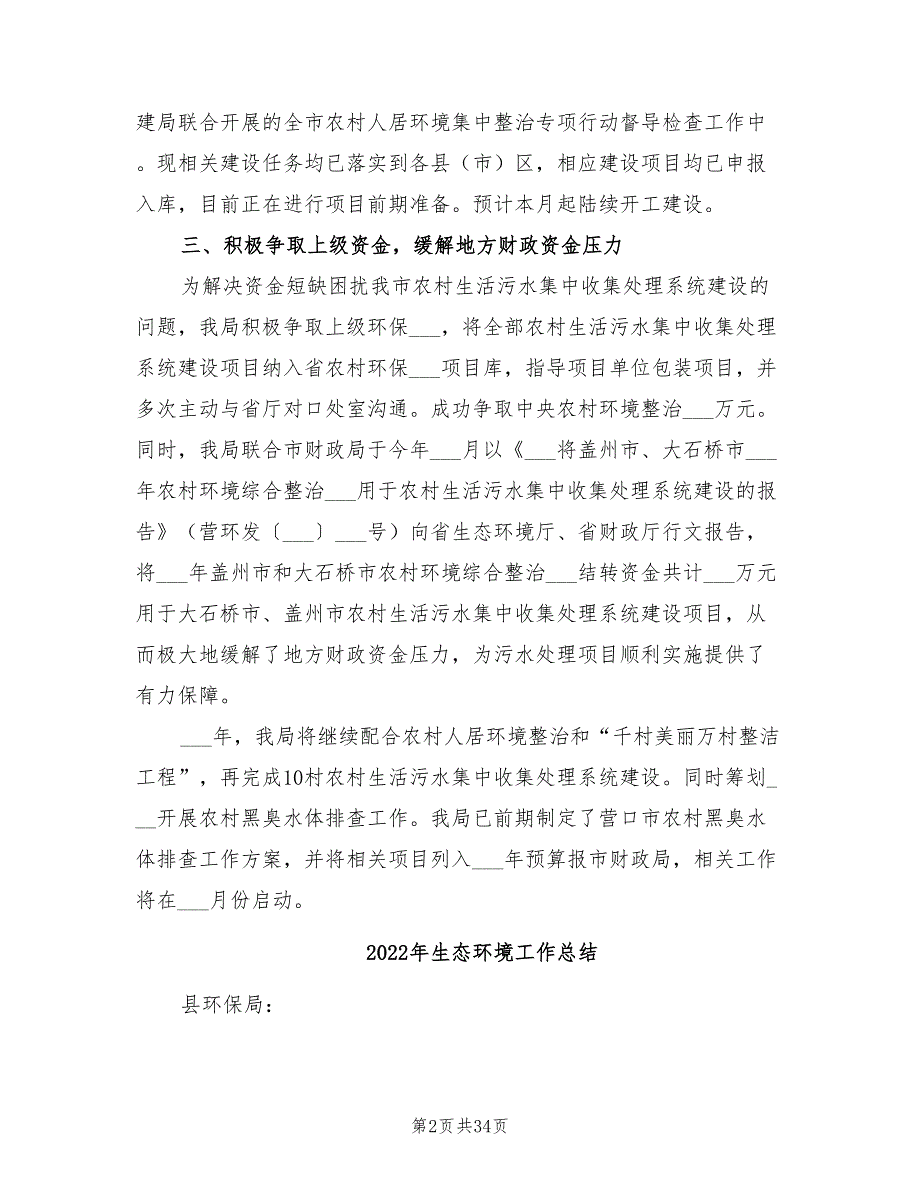 建局联合开展的全市农村人居环境集中整治专项行动督导检查工作中
。现相关建设任务均已落实到各县（市）区，相应建设项目均已申报
入库，目前正在进行项目前期准备。预计本月起陆续开工建设。
三、积极争取上级资金，缓解地方财政资金压力
为解决资金短缺困扰我市农村生活污水集中收集处理系统建设的
问题，我局积极争取上级环保___，将全部农村生活污水集中收集处理
系统建设项目纳入省农村环保___项目库，指导项目单位包装项目，并
多次主动与省厅对口处室沟通。成功争取中央农村环境整治___万元。
同时，我局联合市财政局于今年___月以《___将盖州市、大石桥市___
年农村环境综合整治___用于农村生活污水集中收集处理系统建设的报
告》（营环发〔___〕___号）向省生态环境厅、省财政厅行文报告，
将___年盖州市和大石桥市农村环境综合整治___结转资金共计___万元
用于大石桥市、盖州市农村生活污水集中收集处理系统建设项目，从
而极大地缓解了地方财政资金压力，为污水处理项目顺利实施提供了
有力保障。
___年，我局将继续配合农村人居环境整治和“千村美丽万村整洁
工程”，再完成10村农村生活污水集中收集处理系统建设。同时筹划_
__开展农村黑臭水体排查工作。我局已前期制定了营口市农村黑臭水
体排查工作方案，并将相关项目列入___年预算报市财政局，相关工作
将在___月份启动。
2022年生态环境工作总结
县环保局：
第2页共34页